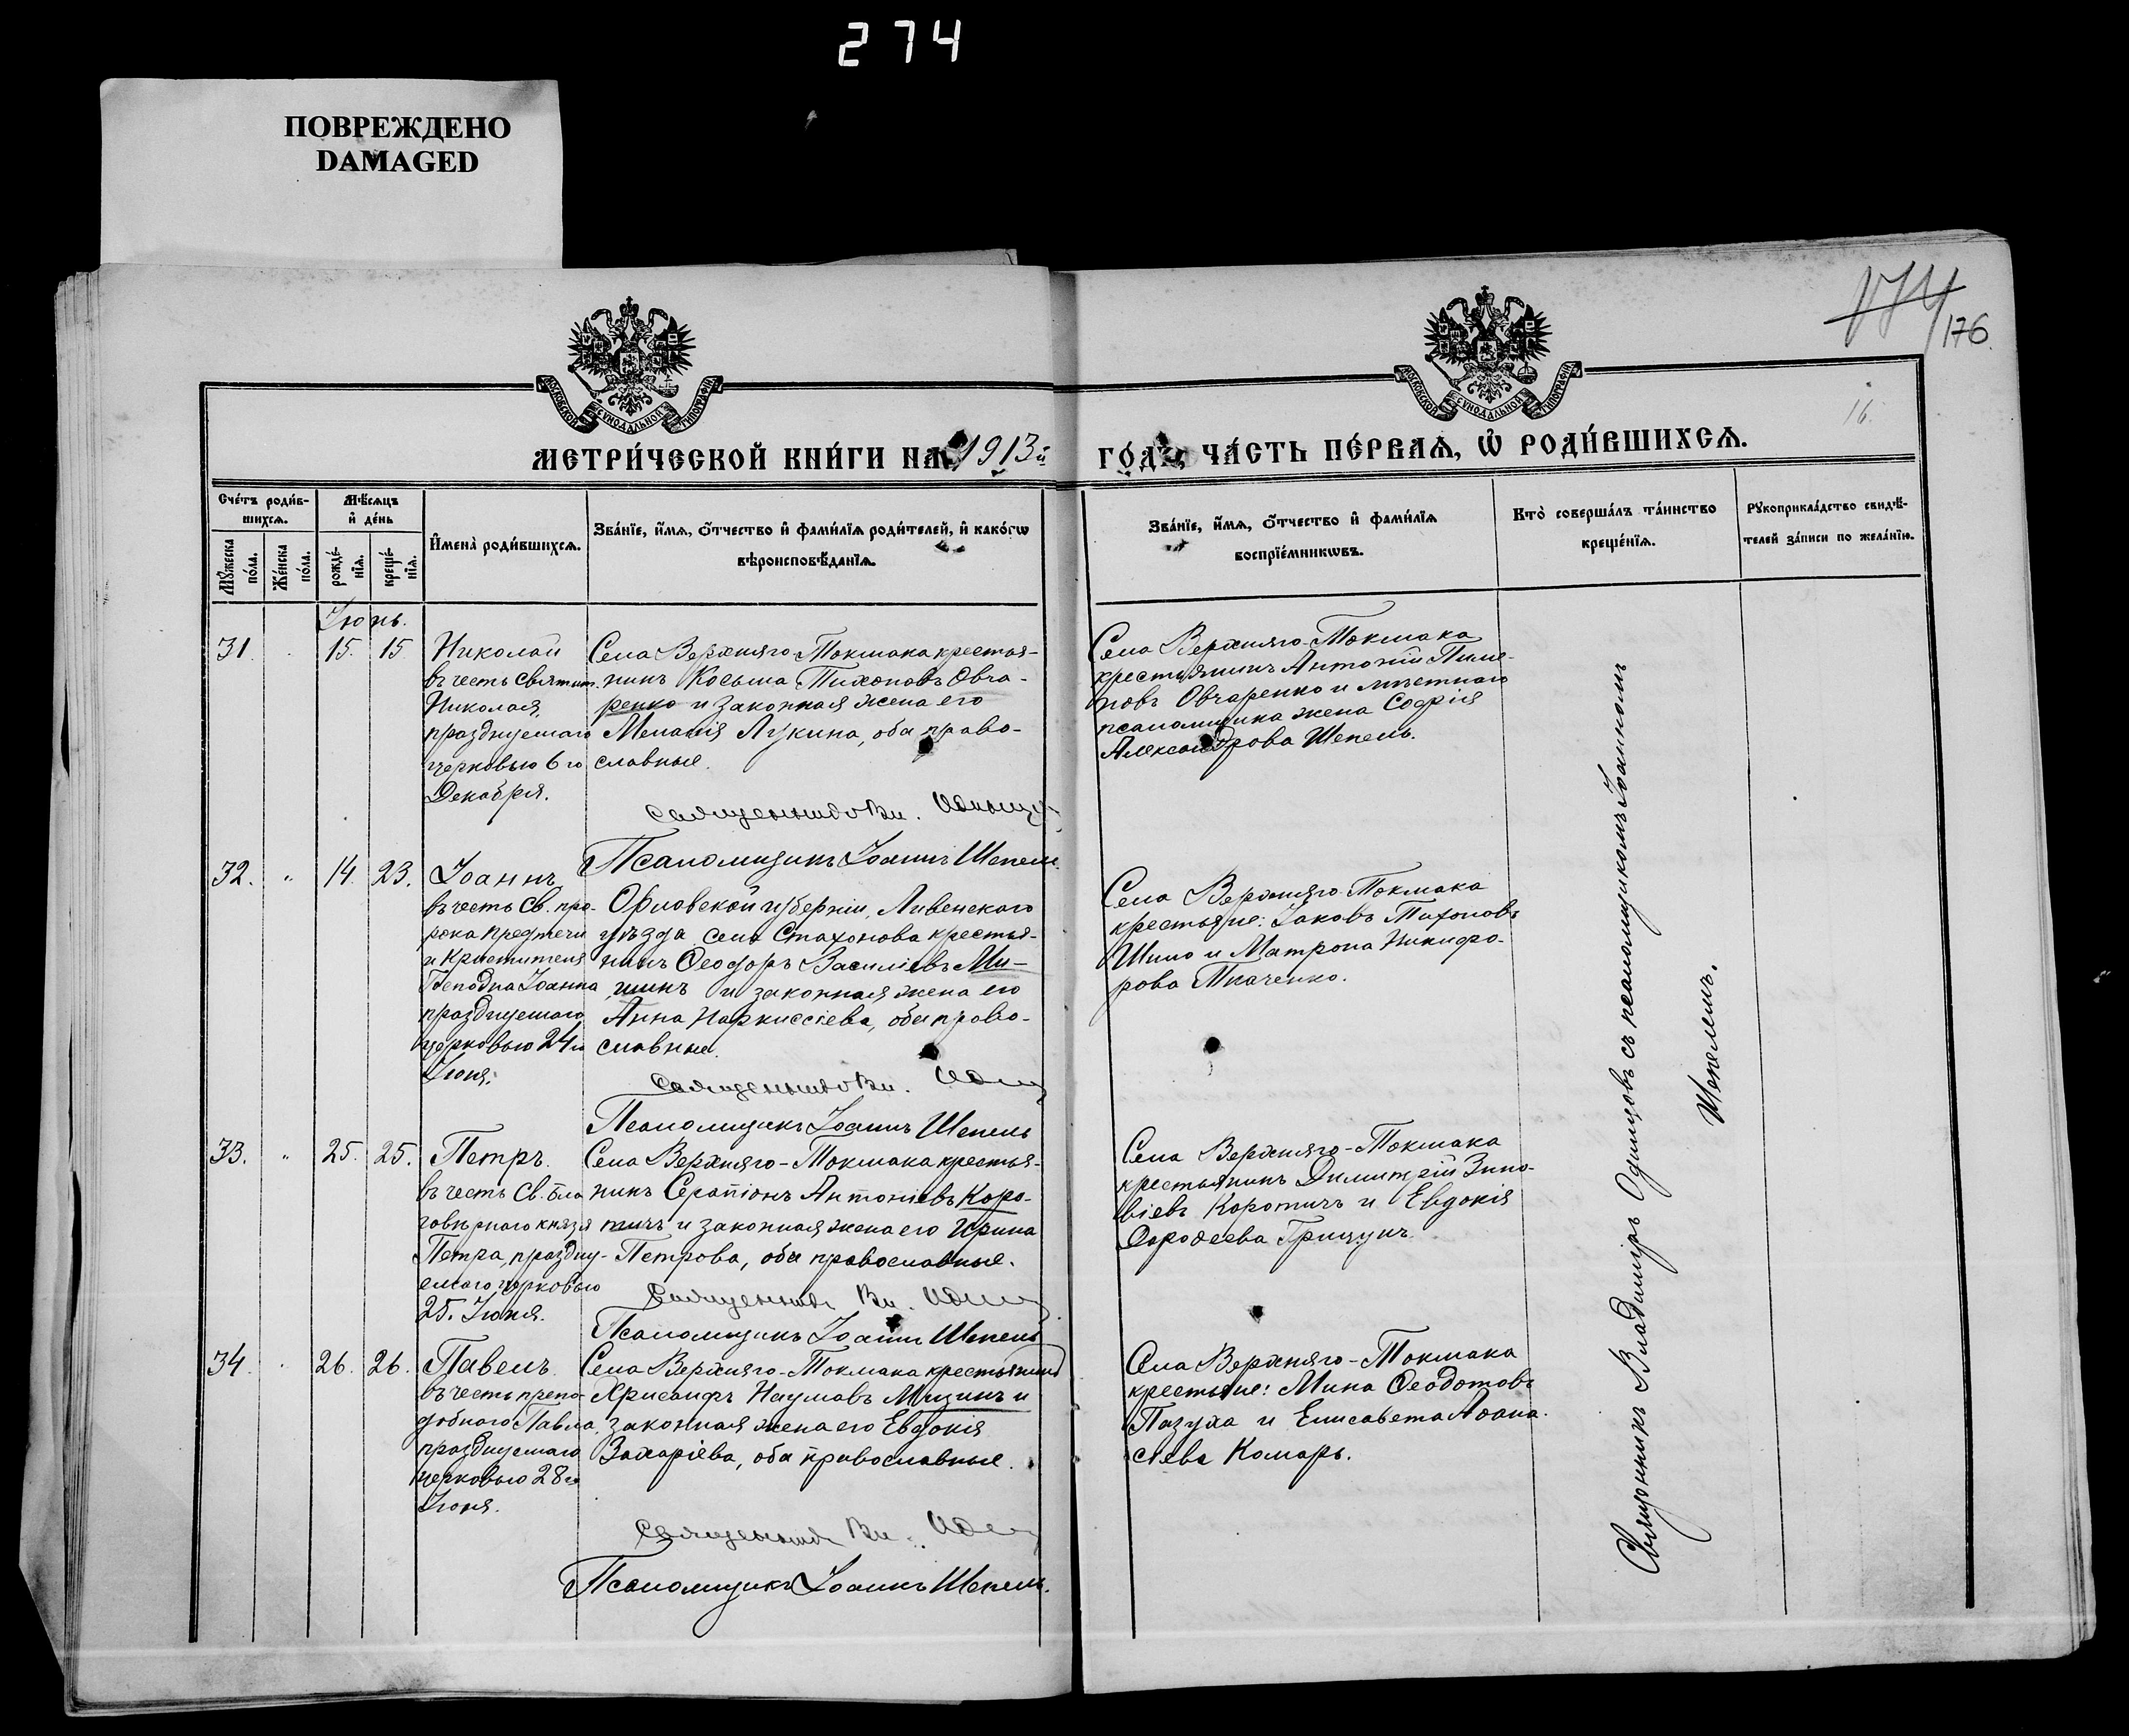 274
ПОВРЕЖДЕНО
DAMAGED
174
176.
16.
МОСКОВСКОЙ СѴНОДАЛЬНОЙ ТИПОГРАФІИ
МОСКОВСКОЙ СѴНОДАЛЬНОЙ ТИПОГРАФІИ
МЕТРИ́ЧЕСКОЙ КНИ́ГИ НА 1913й
ГО́ДЪ, ЧА́СТЬ ПЕ́РВАѦ, Ѡ҆ РОДИ́ВШИХСѦ.
Сче́тъ роди́в-
шихсѧ.
Мꙋ́жеска
по́ла.
Же́нска
по́ла.
Мѣ́сѧцъ
и҆ де́нь
рожде́-
нїѧ.
креще́-
нїѧ.
И҆мена̀ роди́вшихсѧ.
Зва́нїе, и҆́мѧ, ѻ҆́тчество и҆ фами́лїѧ роди́телей, и҆ како́гѡ
вѣроисповѣ́данїѧ.
Зва́нїе, и҆́мѧ, ѻ҆́тчество и҆ фами́лїѧ
воспрїе́мникѡвъ.
Кто̀ соверша́лъ та́инство
креще́нїѧ.
Рꙋкоприкла́дство свидѣ́-
телей за́писи по жела́нїю.
Іюнь.
31. 15. 15
Николай
въ честь святит.
Николая,
празднуемаго
церковью 6го
Декабря.
Села Верхняго-Токмака крестья-
нинъ Косьма Тихоновъ Овча-
ренко и законная жена его
Меланія Лукина, оба право-
славные.
Священникъ Вл. Одинцов
Псаломщикъ Іоаннъ Шепель.
Села Верхняго-Токмака
крестьянинъ Антоній Пиме-
новъ Овчаренко и мѣстнаго
псаломщика жена Софія
Александрова Шепель.
32. " 14. 23.
Іоаннъ
въ честь Св. про-
рока Предтечи
и Крестителя
Господня Іоанна
празднуемаго
церковью 24го
Іюня.
Орловской губерніи, Ливенскаго
уѣзда села Стахонова крестья-
нинъ Ѳеодоръ Василіевъ Ми-
шинъ и законная жена его
Анна Наркиссіева, оба право-
славные.
Священникъ Вл. Один
Псаломщикъ Іоаннъ Шепель
Села Верхняго-Токмака
крестьяне: Іаковъ Тихоновъ
Шило и Матрона Никифо-
рова Ткаченко.
33. " 25. 25.
Петръ
въ честь Св. бла
говѣрнаго князя
Петра, праздну-
емаго церковью
25. Іюня.
Села Верхняго-Токмака крестья-
нинъ Серапіонъ Антоніевъ Коро-
тичъ и законная жена его Ирина
Петрова, оба православные.
Священникъ Вл. Один
Псаломщикъ Іоаннъ Шепель
Села Верхняго-Токмака
крестьянинъ Димитрій Зино-
віевъ Коротичъ и Евдокія
Грицунъ.
34. 26. 26.
Павелъ
въ честь препо-
добнаго Павла,
празднуемаго
церковью 28го
Іюня.
Села Верхняго-Токмака крестьянинъ
Хрисанфъ Наумовъ Мизинъ и
законная жена его Евдокія
Захаріева, оба православные.
Священникъ Вл. Один
Псаломщикъ Іоаннъ Шепель.
Села Верхняго-Токмака
крестьяне: Мина Ѳеодотовъ
Пазуха и Елисавета Аѳана-
сіева Комаръ.
Священникъ Владиміръ Одинцовъ съ псаломщикомъ Іоанномъ
Шепелемъ.